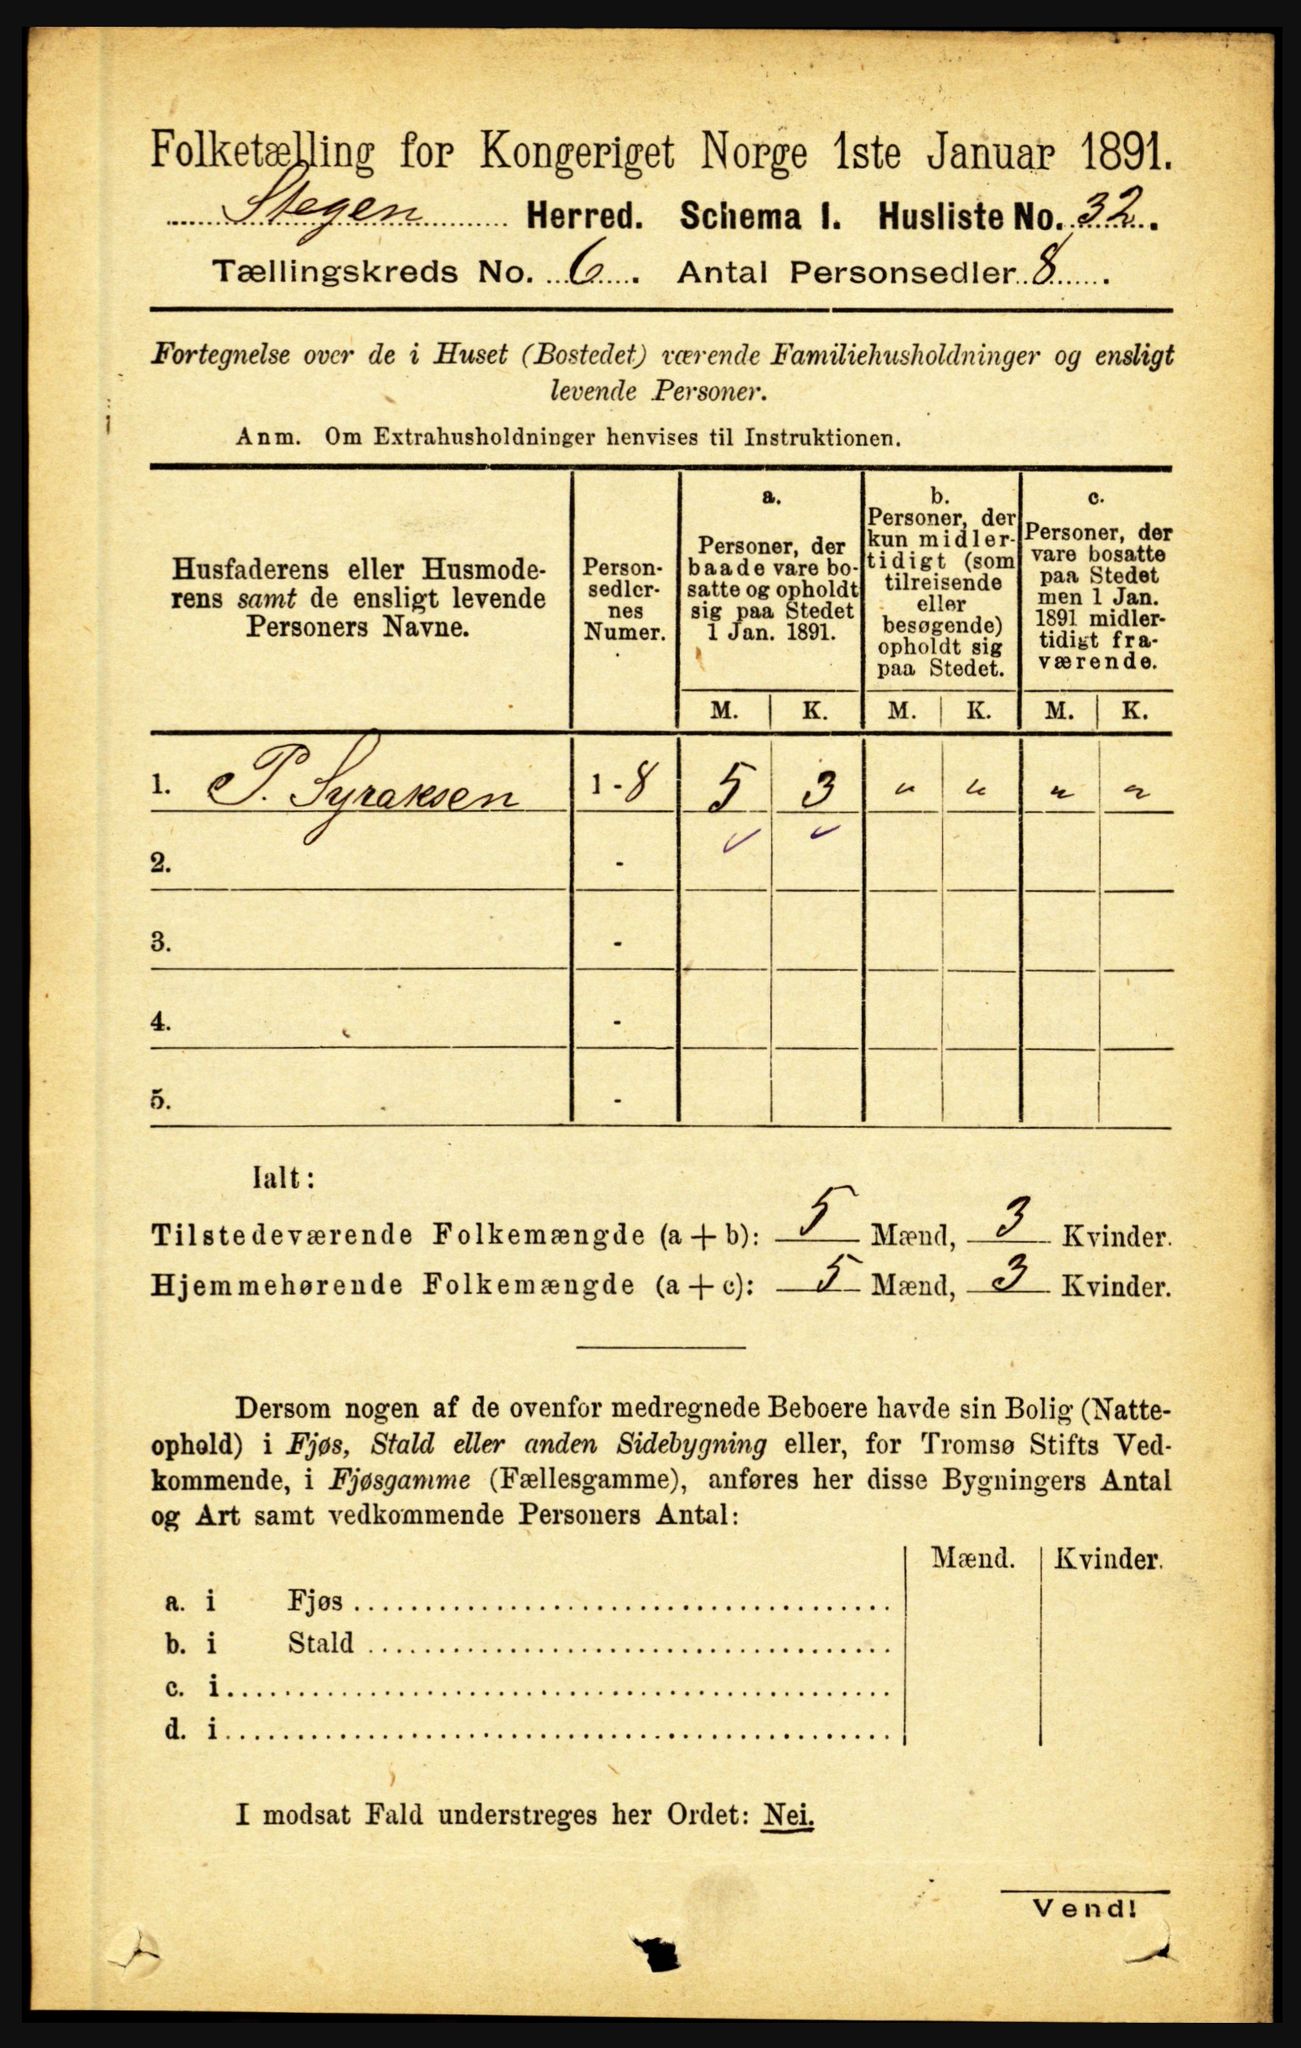 Folketælling for Kongeriget Norge 1ste Januar 1891.
Stegen Herred. Schema I. Husliste No. 32.
Tællingskreds No. 6. Antal Personsedler 8.
Fortegnelse over de i Huset (Bostedet) værende Familiehusholdninger og ensligt
levende Personer.
Anm. Om Extrahusholdninger henvises til Instruktionen.
Husfaderens eller Husmode-
rens samt de ensligt levende
Personers Navne.
Person-
sedler-
nes
Numer.
a.
Personer, der
baade vare bo-
satte og opholdt
sig paa Stedet
1 Jan. 1891.
b.
Personer, der
kun midler-
tidigt (som
tilreisende
eller
besøgende)
opholdt sig
paa Stedet.
c.
Personer, der
vare bosatte
paa Stedet
men 1 Jan.
1891 midler-
tidigt fra-
værende.
M. K. M. K. M. K.
1. P. Syraksen 1 - 8 5 3 " " " "
2. -
3. -
4. -
5. -
Ialt:
Tilstedeværende Folkemængde (a + b): 5 Mænd, 3 Kvinder.
Hjemmehørende Folkemængde (a + c): 5 Mænd, 3 Kvinder.
Dersom nogen af de ovenfor medregnede Beboere havde sin Bolig (Natte-
ophold) i Fjøs, Stald eller anden Sidebygning eller, for Tromsø Stifts Ved-
kommende, i Fjøsgamme (Fællesgamme), anføres her disse Bygningers Antal
og Art samt vedkommende Personers Antal:
Mænd. Kvinder.
a. i Fjøs
b. i Stald
c. i
d. i
I modsat Fald understreges her Ordet: Nei.
Vend!